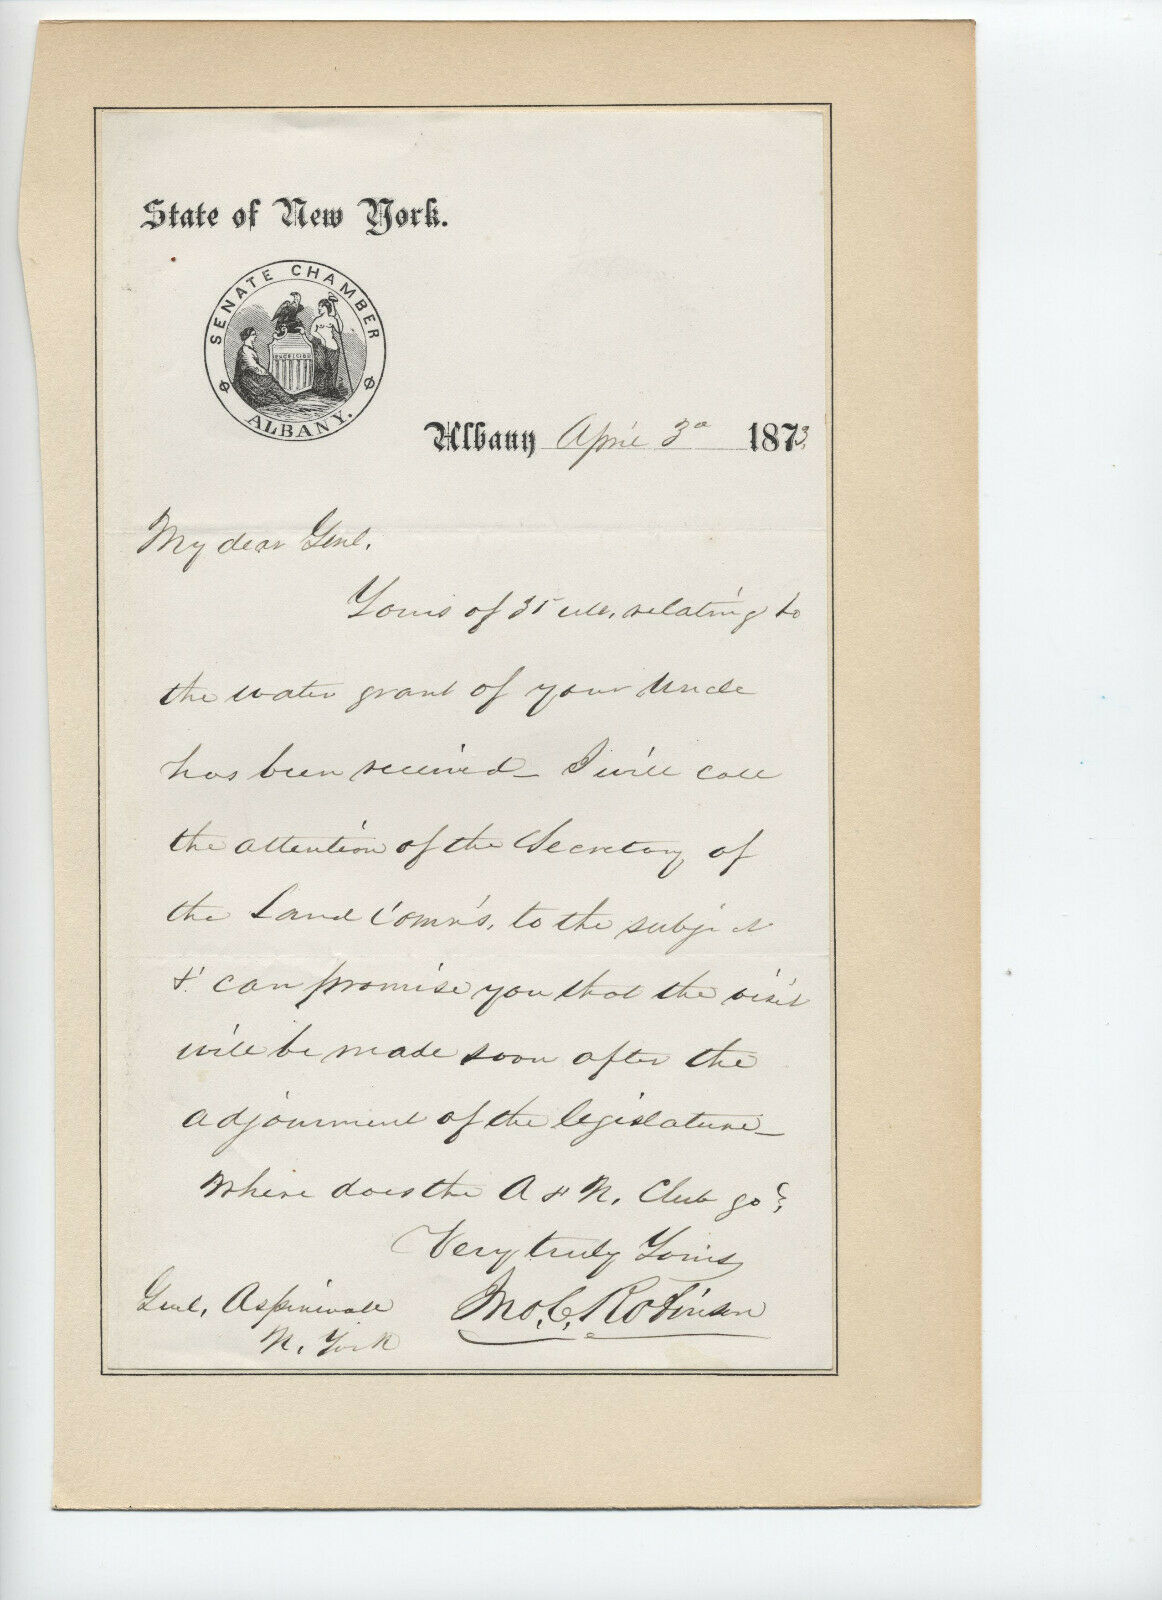 State of New York.
SENATE CHAMBER
EXCELSIOR
ALBANY.
Albany April 3d 1873.
My dear Genl.
Yours of 31 ult. relating to
the water grant of your Uncle
has been received – I will call
the attention of the Secretary of
the Land Comrs. to the subject
& can promise you that the visit
will be made soon after the
adjournment of the legislature –
Where does the A & N. Club go?
Very truly Yours
Jno. C. Robinson
Genl. Aspinwall
N. York